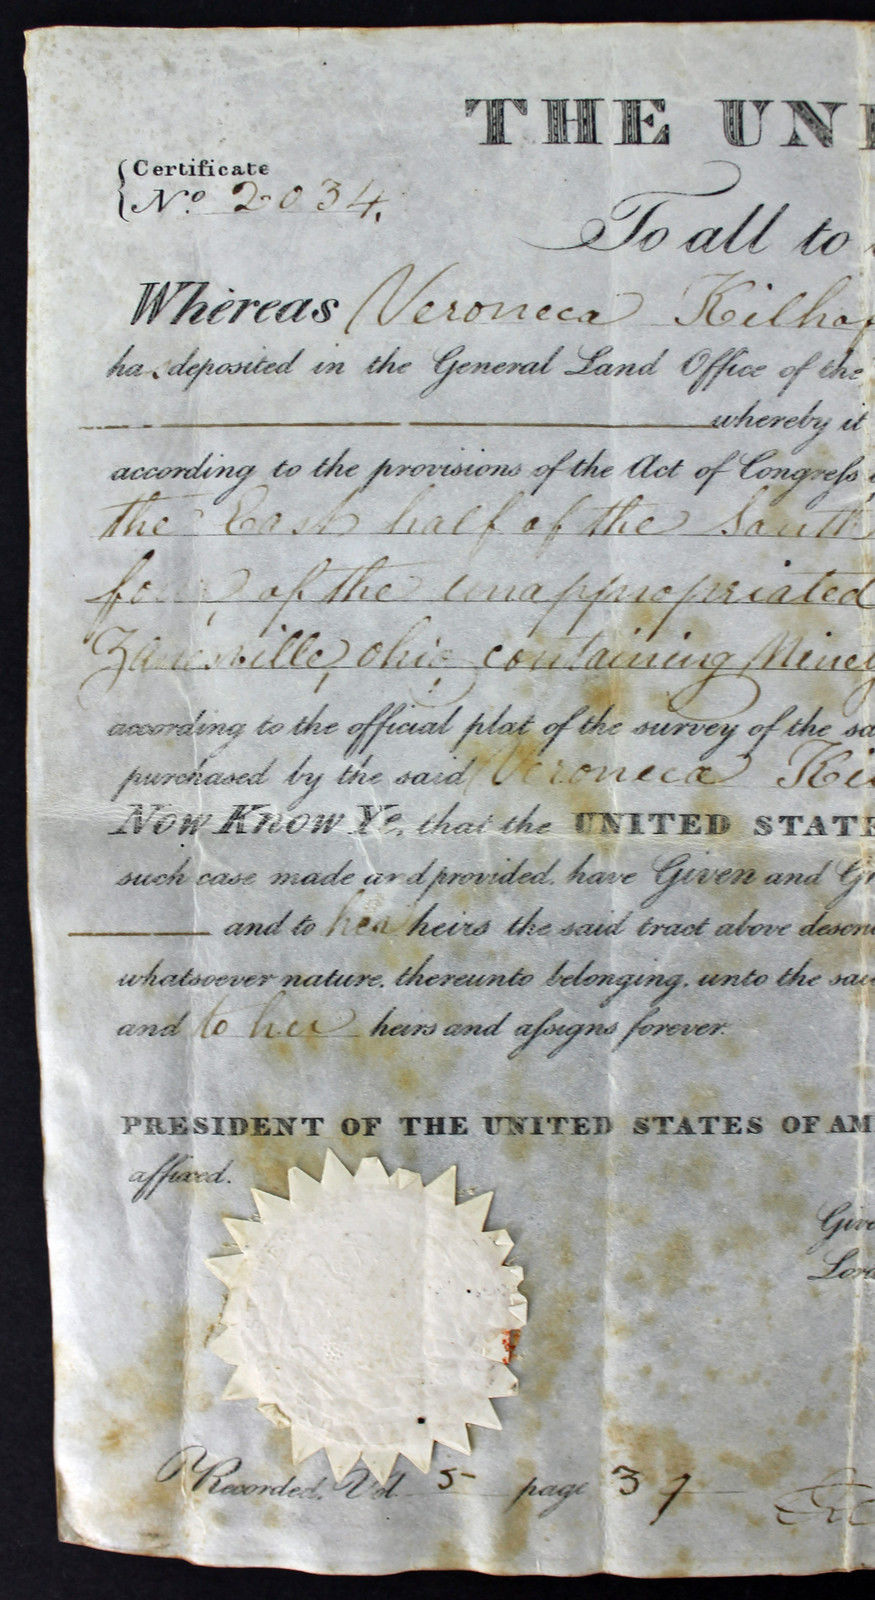 THE UNI
Certificate
No. 2034.
To all to
Whereas Veroneca Kilhaf
has deposited in the General Land Office of the
whereby it
according to the provisions of the Act of Congress
the East half of the South
of the unappropriated
Zanesville, Ohio, containing Ninety
according to the official plat of the survey of the sa
purchased by the said Veroneca Ki
Now Know Ye, that the UNITED STATE
such case made and provided, have Given and Gr
and to her heirs the said tract above descri
whatsoever nature, thereunto belonging, unto the said
and to her heirs and assigns forever.
PRESIDENT OF THE UNITED STATES OF AM
affixed.
Give
Lord
Recorded, Vol. 5 page 37